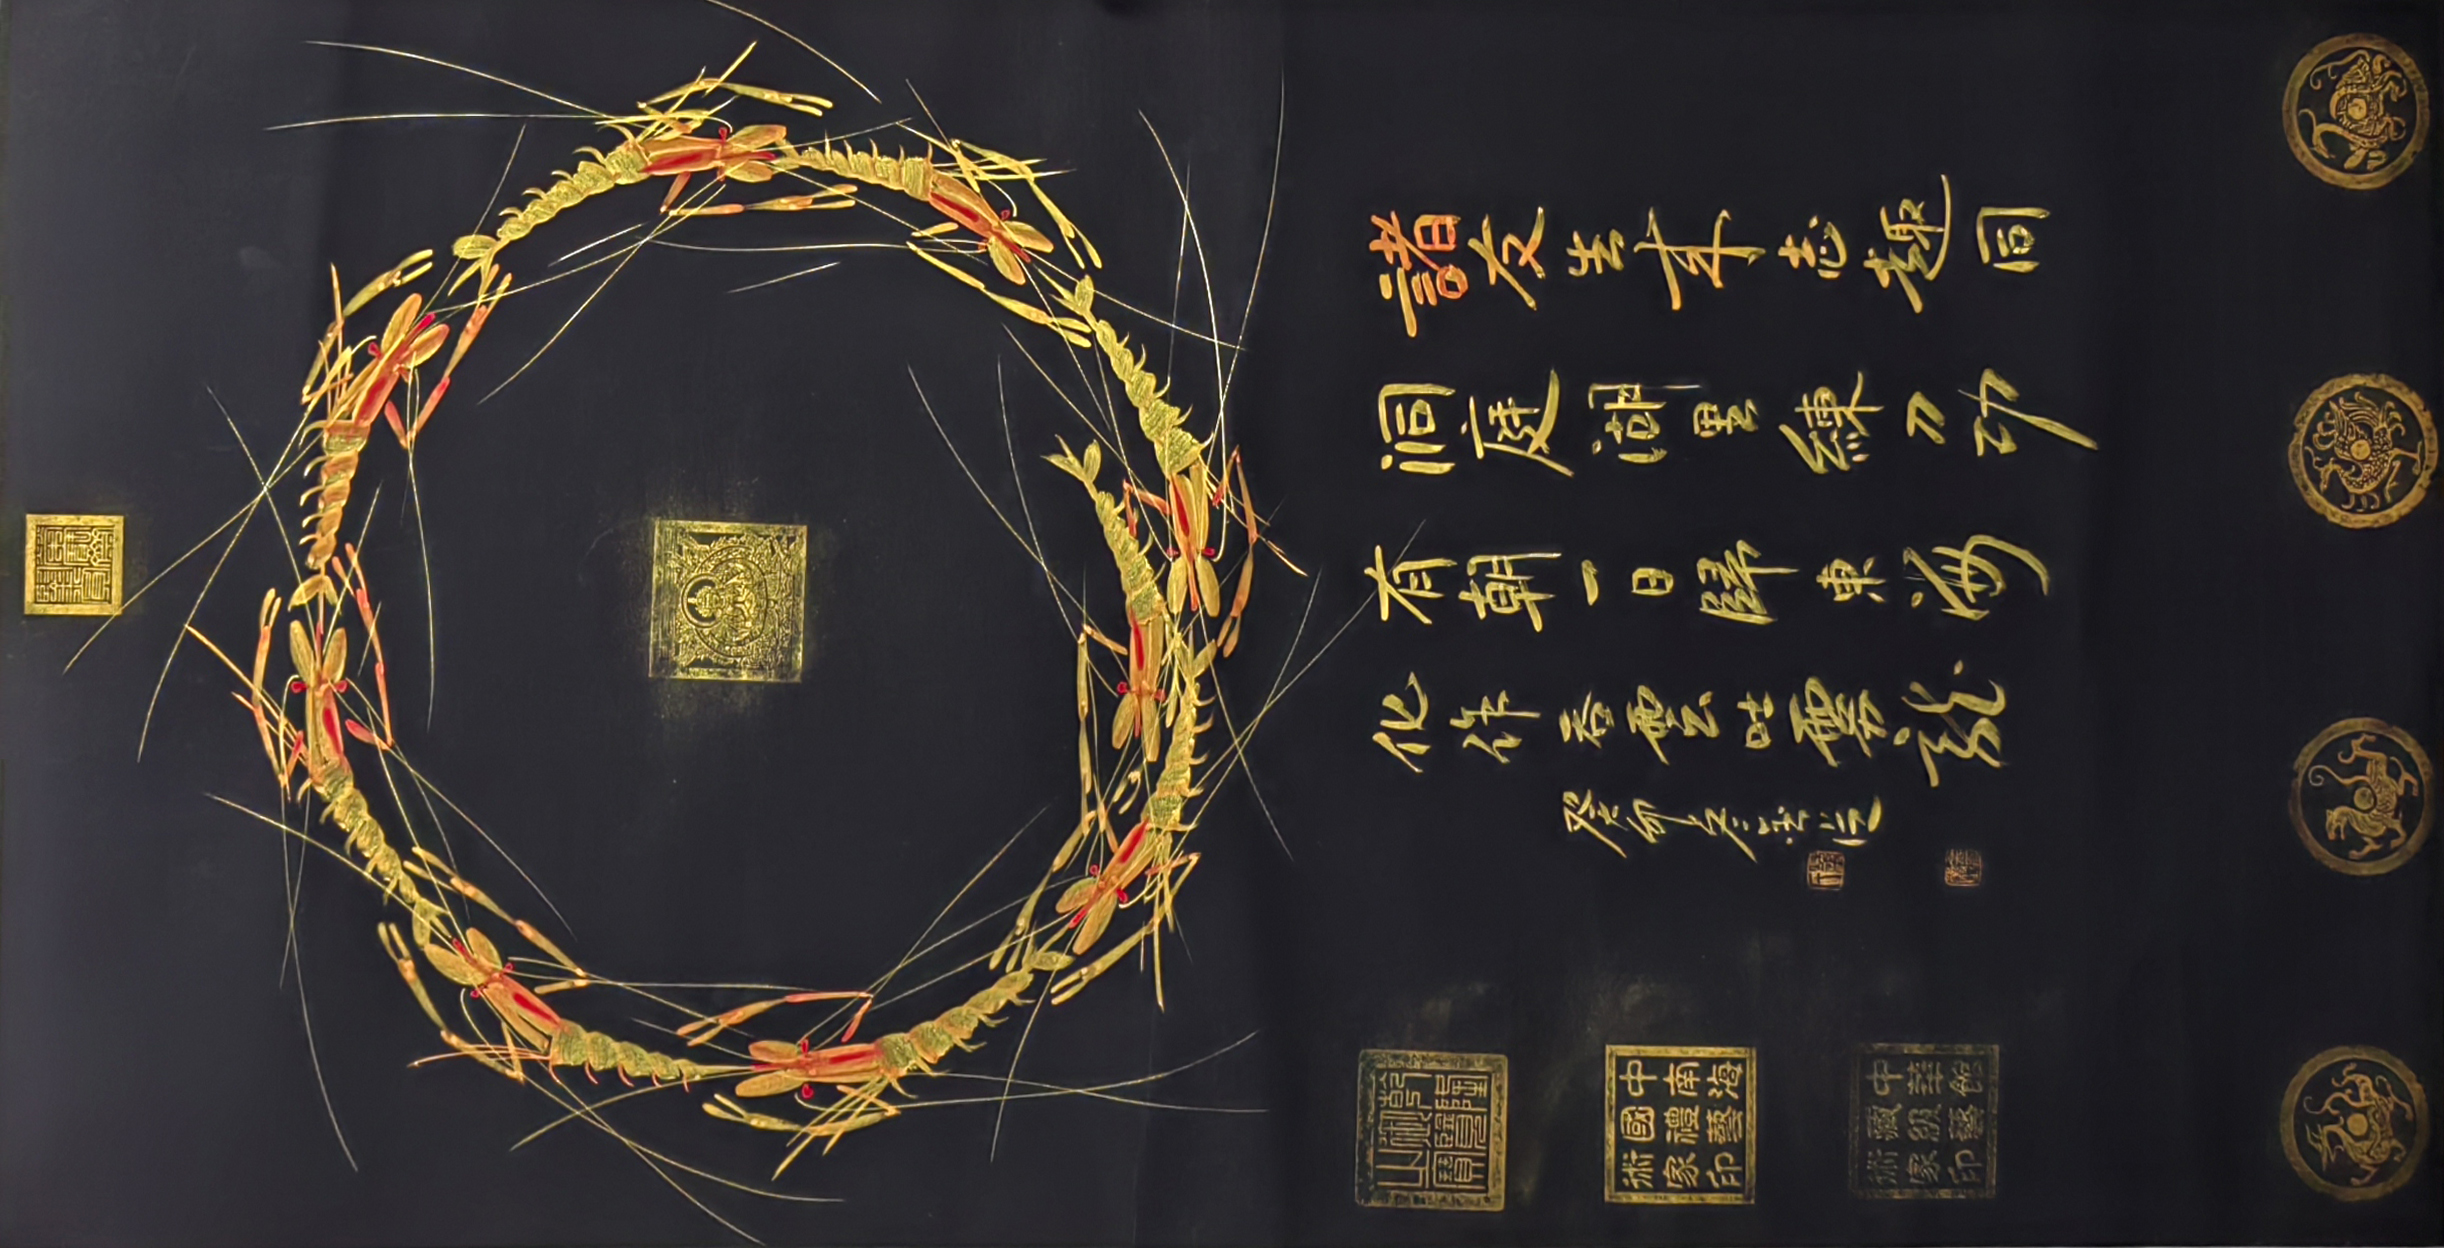 諸友生来志趣同
洞庭湖里練刀功
有朝一日歸東海
化作吞雲吐霧龍
癸卯年冬
中南海
國禮藝
術家印
中華館
藏級藝
術家印